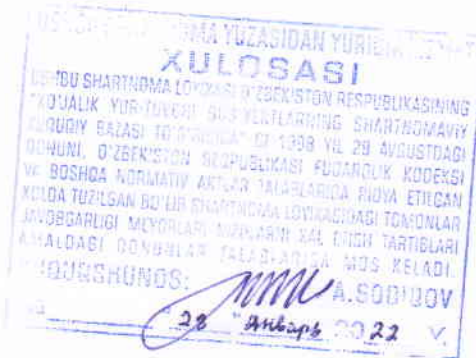 SHARTNOMA YUZASIDAN YURIDIK
XULOSASI
USHBU SHARTNOMA LOYIXASI O'ZBEKISTON RESPUBLIKASINING
"XO'JALIK YURITUVCHI SUB'YEKTLARNING SHARTNOMAVIY
HUQUQIY BAZASI TO'G'RISIDA" GI 1998 YIL 29 AVGUSTDAGI
QONUNI, O'ZBEKISTON RESPUBLIKASI FUQAROLIK KODEKSI
VA BOSHQA NORMATIV AKTLAR TALABLARIGA RIOYA ETILGAN
XOLDA TUZILGAN BO'LIB SHARTNOMA LOYIXASIDAGI TOMONLAR
JAVOBGARLIGI MEYORLARI NIZOLARNI XAL ETISH TARTIBLARI
AMALDAGI QONUNLAR TALABLARIGA MOS KELADI.
HUQUQSHUNOS: A.SODIQOV
"28" Январь 2022 y.